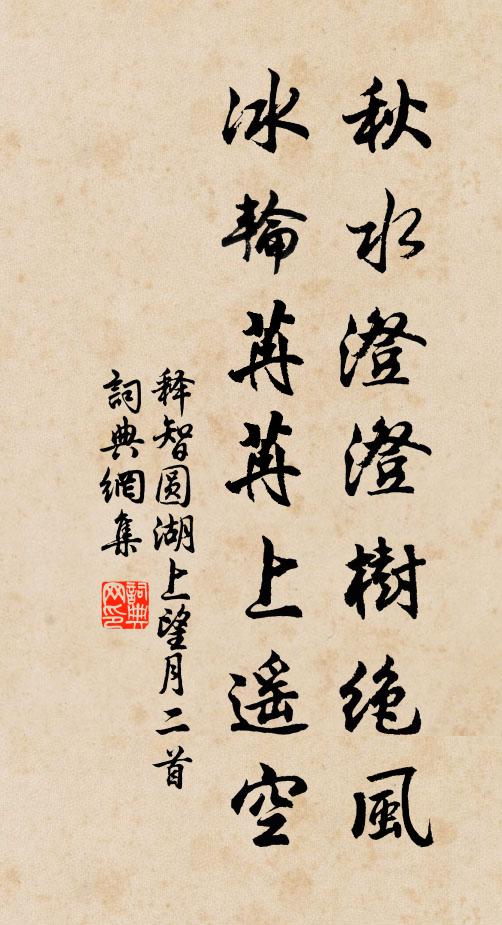 秋水澄澄樹绝風
冰輪苒苒上遥空
释智圆湖上望月二首
詞典網集
詞典网印